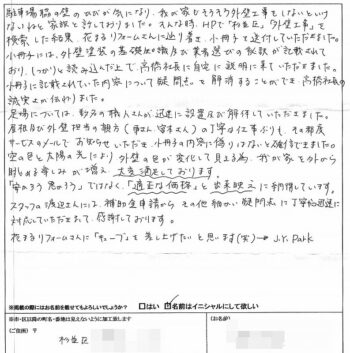 駐車場脇の壁のひびが気になり、我が家もそろそろ外壁工事をしないといけ
ないねと家族と話しておりました。そんな時、HPで「杉並区、外壁工事」で
検索した結果、花まるリフォームさんに辿り着き、小冊子を送付していただきました。
小冊子には、外壁塗装の基礎知識及び業者選びの秘訣が記載されて
おり、しっかりと読み込んだ上で、髙橋社長に自宅に説明に来ていただきました。
小冊子に記載されていた内容について疑問点を解消することができ、髙橋社長の
誠実さが伝わりました。
足場については、数名の職人さんが迅速に設置及び解体していただきました。
屋根及び外壁担当の親方の丁寧な仕事ぶりも、その都度
サービスのメールでお知らせいただき、小冊子の内容に偽りはないと確信できました。
空の色と太陽の光により外壁の色が変化して見える為、我が家を外から
眺める楽しみが増え、大変満足しております。
「安かろう悪かろう」ではなく、「適正な価格」と出来映えに納得しています。
スタッフの渡辺さんには、補助金申請からその他細かい疑問点に丁寧に迅速に
対応していただきまして、感謝しております。
花まるリフォームさんに「キューブ」を差し上げたいと思います(笑)→J.Y. Park
※掲載の際にはお名前を載せてもよろしいでしょうか? □はい ☑名前はイニシャルにして欲しい
※市・区以降の町名・番地は見えないように加工致します
(ご住所) 〒
(お名前)
杉並区